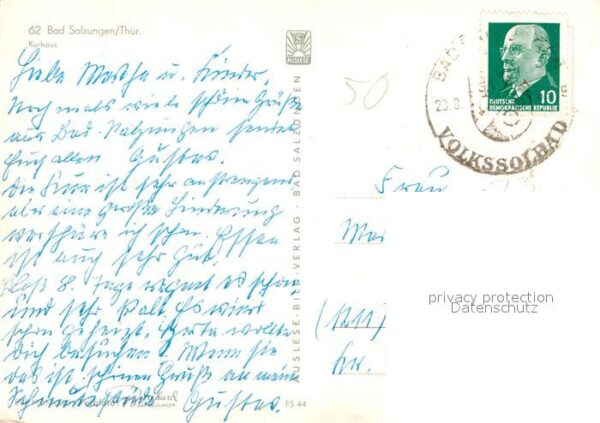 62 Bad Salzungen/Thür.
Kurhaus
AUSLESE
Liebe Martha u. Kinder,
Nochmals viele schöne Grüße
aus Bad-Salzungen sendet
Euch allen Gustav.
Die Kur ist sehr anstrengend
aber eine große Linderung
verspüre ich schon. Essen
ist auch sehr gut.
Bloß 8. Tage regnet es schon
und sehr kalt. Es wird
schon geheizt. Herta wollte
Dich besuchen. Wenn sie
das ist. schönen Gruß an meine
Gustav.
FS 44
AUSLESE-BILD-VERLAG · BAD SALZUNGEN
50
BAD
23.8.
VOLKSSOLBAD
DEUTSCHE
DEMOKRATISCHE REPUBLIK
10
Frau
privacy protection
Datenschutz
Kr.